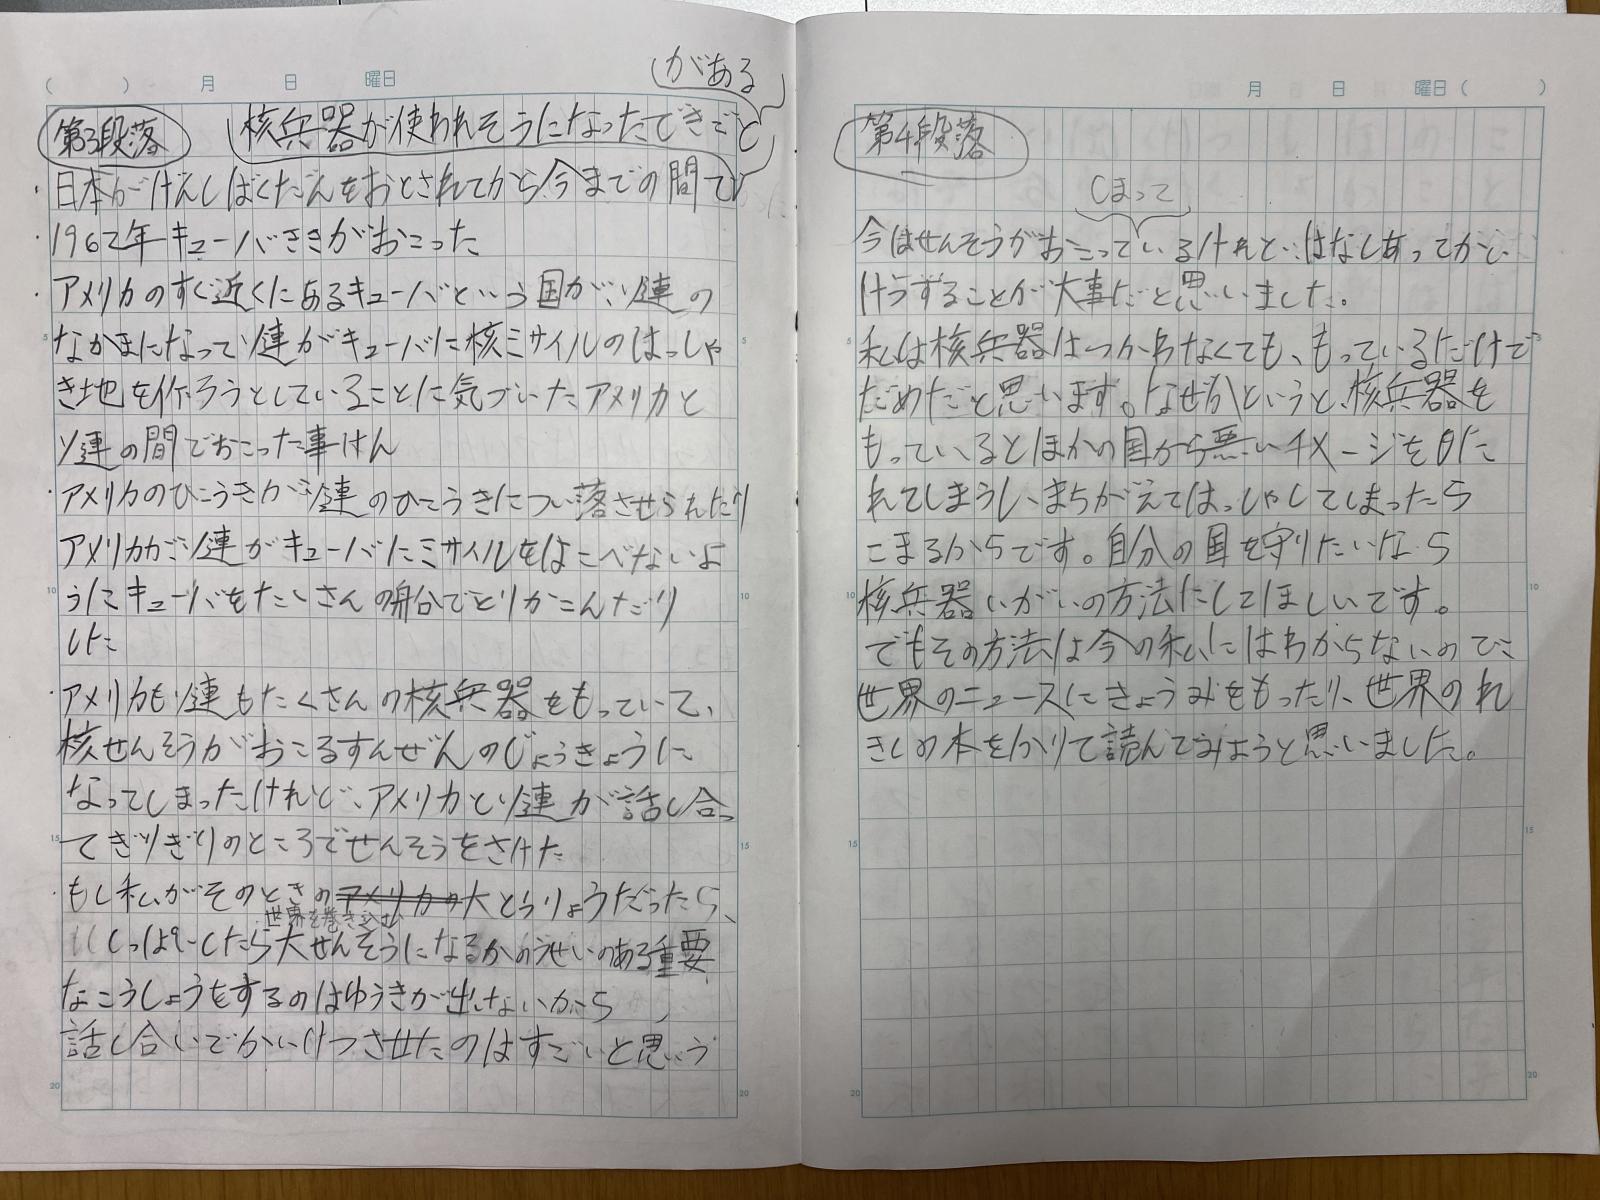 がある
( ) 月 日 曜日
第3段落 核兵器が使われそうになったできごと
日本がげんしばくだんをおとされてから今までの間で
1962年キューバききがおこった
アメリカのすぐ近くにあるキューバという国がソ連の
なかまになってソ連がキューバに核ミサイルのはっしゃ
き地を作ろうとしていることに気づいたアメリカと
ソ連の間でおこった事けん
アメリカのひこうきがソ連のひこうきについ落させられたり
アメリカがソ連がキューバにミサイルをはこべないよ
うにキューバをたくさんの船でとりかこんだり
した
アメリカもソ連もたくさんの核兵器をもっていて、
核せんそうがおこるすんぜんのじょうきょうに
なってしまったけれど、アメリカとソ連が話し合っ
てぎりぎりのところでせんそうをさけた
もし私がそのときのアメリカの大とうりょうだったら、
世界を巻き込む
しっぱいしたら大せんそうになるかのうせいのある重要
なこうしょうをするのはゆうきが出ないから
話し合いでかいけつさせたのはすごいと思いう
月 日 曜日 ( )
第4段落
しまって
今はせんそうがおこっているけれど、はなしあってかい
けつすることが大事だと思いました。
私は核兵器はつかわなくても、もっているだけで
だめだと思います。なぜかというと、核兵器を
もっているとほかの国から悪いイメージを
れてしまうし、まちがえてはっしゃしてしまったら
こまるからです。自分の国を守りたいなら
核兵器いがいの方法にしてほしいです。
でもその方法は今の私にはわからないので
世界のニュースにきょうみをもったり、世界のれ
きしの本をかりて読んでみようと思いました。